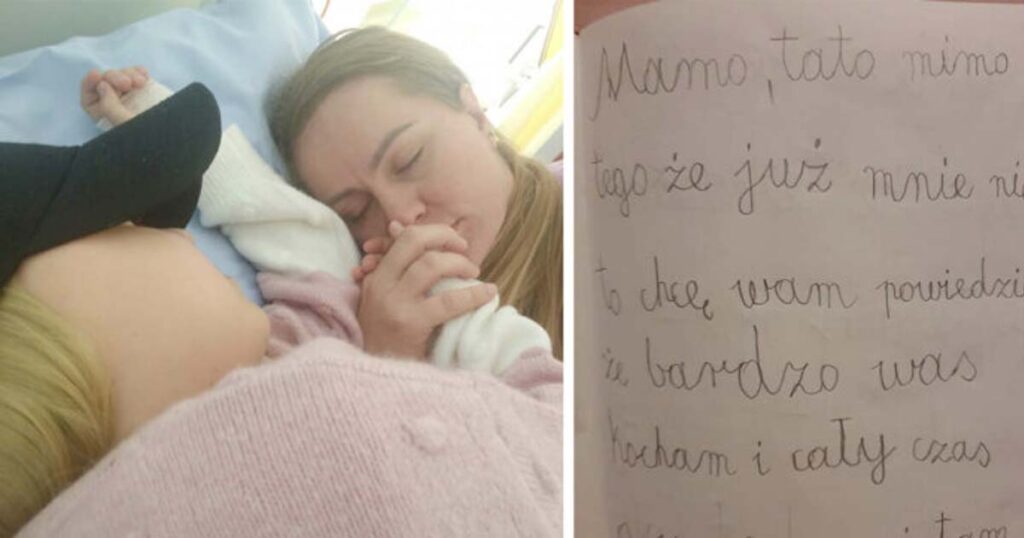 Mamo, tato mimo
tego że już mnie ni
to chcę wam powiedzi
że bardzo was
kocham i cały czas
i tam